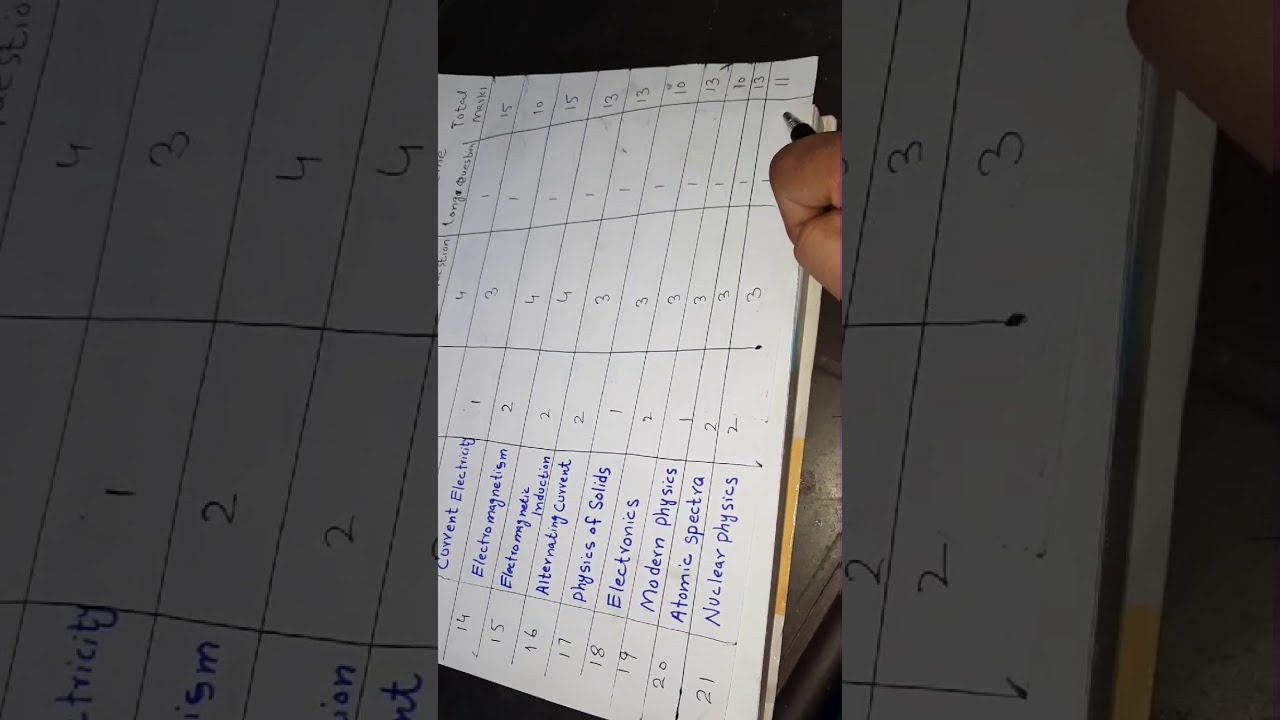 Question Long Question Total Marks
4 1 15
Current Electricity 1 3 1 10
14 Electromagnetism 2 4 1 15
15 Electromagnetic Induction 2 4 1 13
16 Alternating Current 2 3 1 13
17 Physics of Solids 1 3 1 10
18 Electronics 2 3 1 13
19 Modern Physics 1 3 1 10
20 Atomic spectra 2 3 1 13
21 Nuclear physics 2 3 1 11